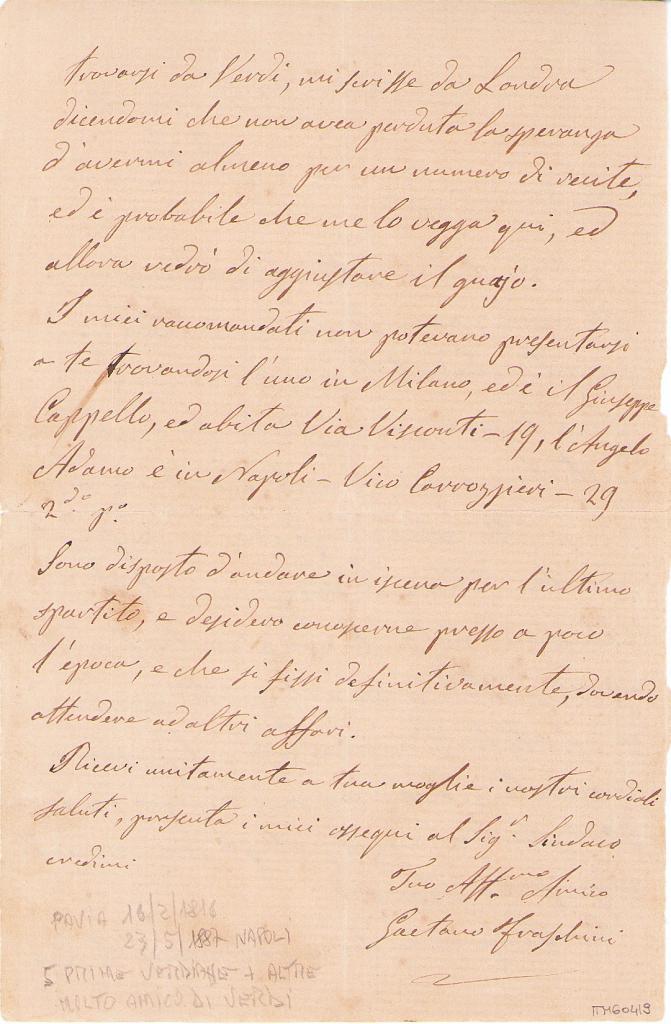 trovarsi da Verdi, mi scrisse da Londra
dicendomi che non avea perduta la speranza
d'avermi almeno per un numero di recite,
ed è probabile che me lo vegga qui, ed
allora vedrò di aggiustare il guajo.
I miei raccomandati non potevano presentarsi
a te trovandosi l'uno in Milano, ed è il Giuseppe
Cappello, ed abita Via Visconti - 19, l'Angelo
Adamo è in Napoli - Vico Carrozzieri - 29
2do po
Sono disposto d'andare in iscena per l'ultimo
spartito, e desidero conoscerne presso a poco
l'época, e che si fissi definitivamente, dovendo
attendere ad altri affari.
Ricevi unitamente a tua moglie i nostri cordiali
saluti, presenta i miei ossequi al Sigr. Sindaco
credimi
Tuo Aff.mo Amico
Gaetano Fraschini
PAVIA 16/2/1816
23/5/1887 NAPOLI
5 PRIME VERDIANE + ALTRE
MOLTO AMICO DI VERDI
ITM60419